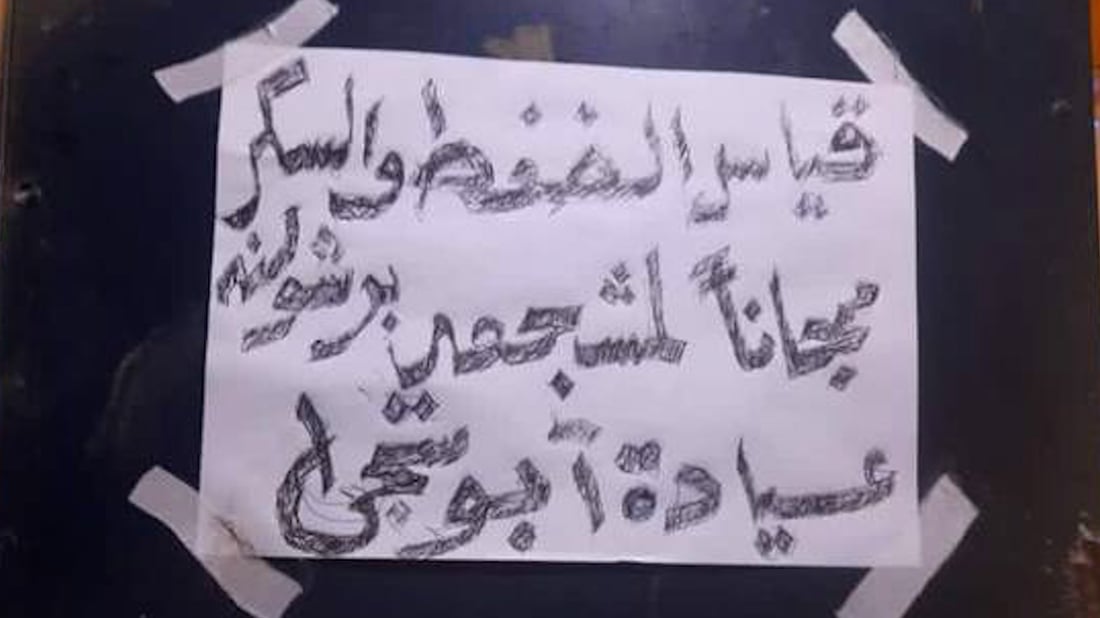 قياس الضغط والسكر
مجاناً لمشجعي برشلونه
عيادة أبو